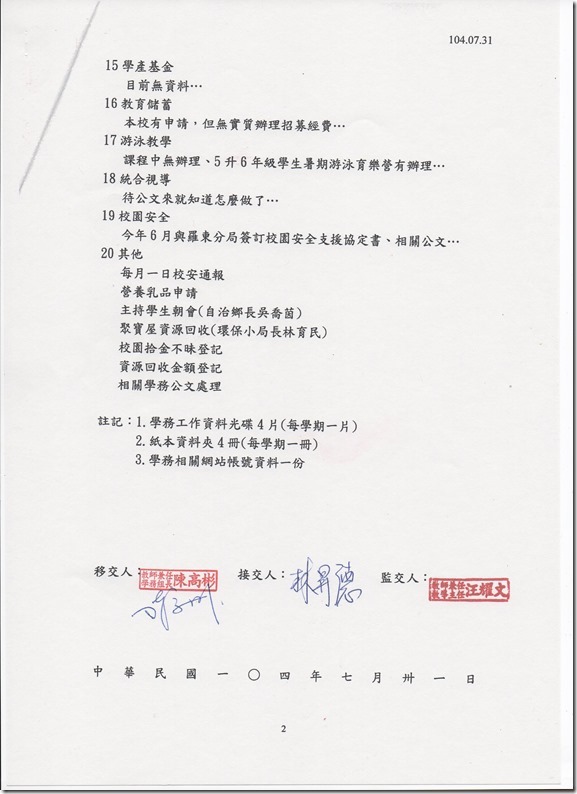 104.07.31
15 學產基金
目前無資料…
16 教育儲蓄
本校有申請，但無實質辦理招募經費…
17 游泳教學
課程中無辦理、5 升 6 年級學生暑期游泳育樂營有辦理…
18 統合視導
待公文來就知道怎麼做了…
19 校園安全
今年 6 月與羅東分局簽訂校園安全支援協定書、相關公文…
20 其他
每月一日校安通報
營養乳品申請
主持學生朝會(自治鄉長吳喬茵)
聚寶屋資源回收(環保小局長林育民)
校園拾金不昧登記
資源回收金額登記
相關學務公文處理
註記：1.學務工作資料光碟 4 片(每學期一片)
2.紙本資料夾 4 冊(每學期一冊)
3.學務相關網站帳號資料一份
移交人：教師兼任學務組長陳高彬 接交人：林昇德 監交人：教師兼任教學主任汪耀文
中華民國一〇四年七月卅一日
2